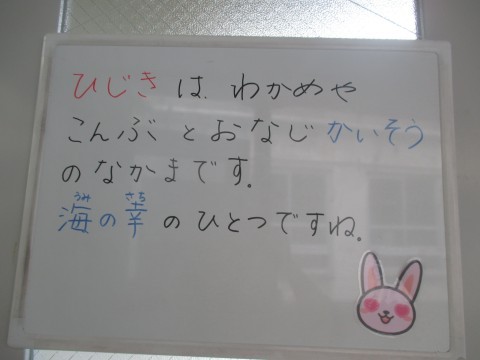 ひじきは、わかめや
こんぶとおなじかいそう
のなかまです。
海の幸のひとつですね。
うみ さち